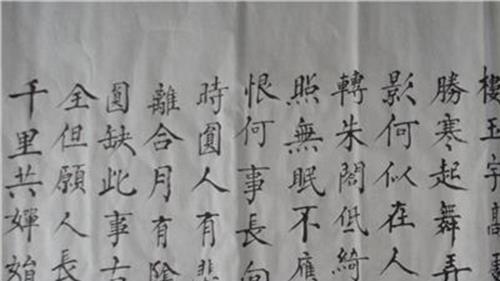 樓玉宇高
勝寒起舞弄
影何似在人
轉朱閣低綺
照無眠不應
恨何事長向
時圓人有悲
離合月有陰
圓缺此事古
全但願人長
千里共嬋娟